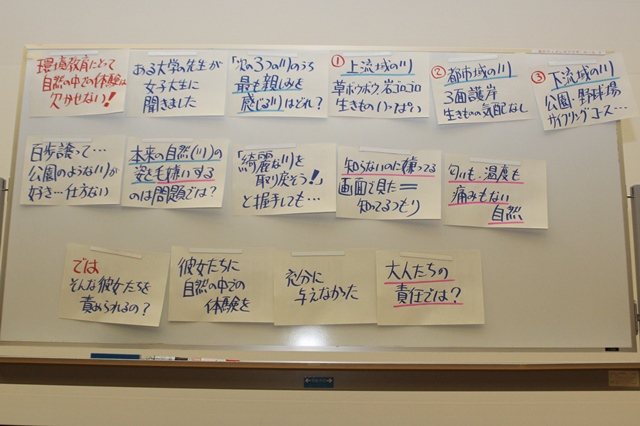 環境教育にとって
自然の中での体験は
欠かせない!
ある大学の先生が
女子大生に
聞きました
「次の3つの川のうち
最も親しみを
感じる川はどれ?
① 上流域の川
草ボウボウ岩ゴロゴロ
生きものいっぱい
② 都市域の川
3面護岸
生きものの気配なし
③ 下流域の川
公園・野球場
サイクリングコース…
百歩譲って…
公園のような川が
好き…仕方ない
本来の自然(川)の
姿を毛嫌いする
のは問題では?
「綺麗な川を
取り戻そう!」
と握手しても…
知らないのに嫌ってる
画面で見た=
知ってるつもり
匂いも・温度も
痛みもない
自然
では
そんな彼女たちを
責められるの?
彼女たちに
自然の中での
体験を
充分に
与えなかった
大人たちの
責任では?